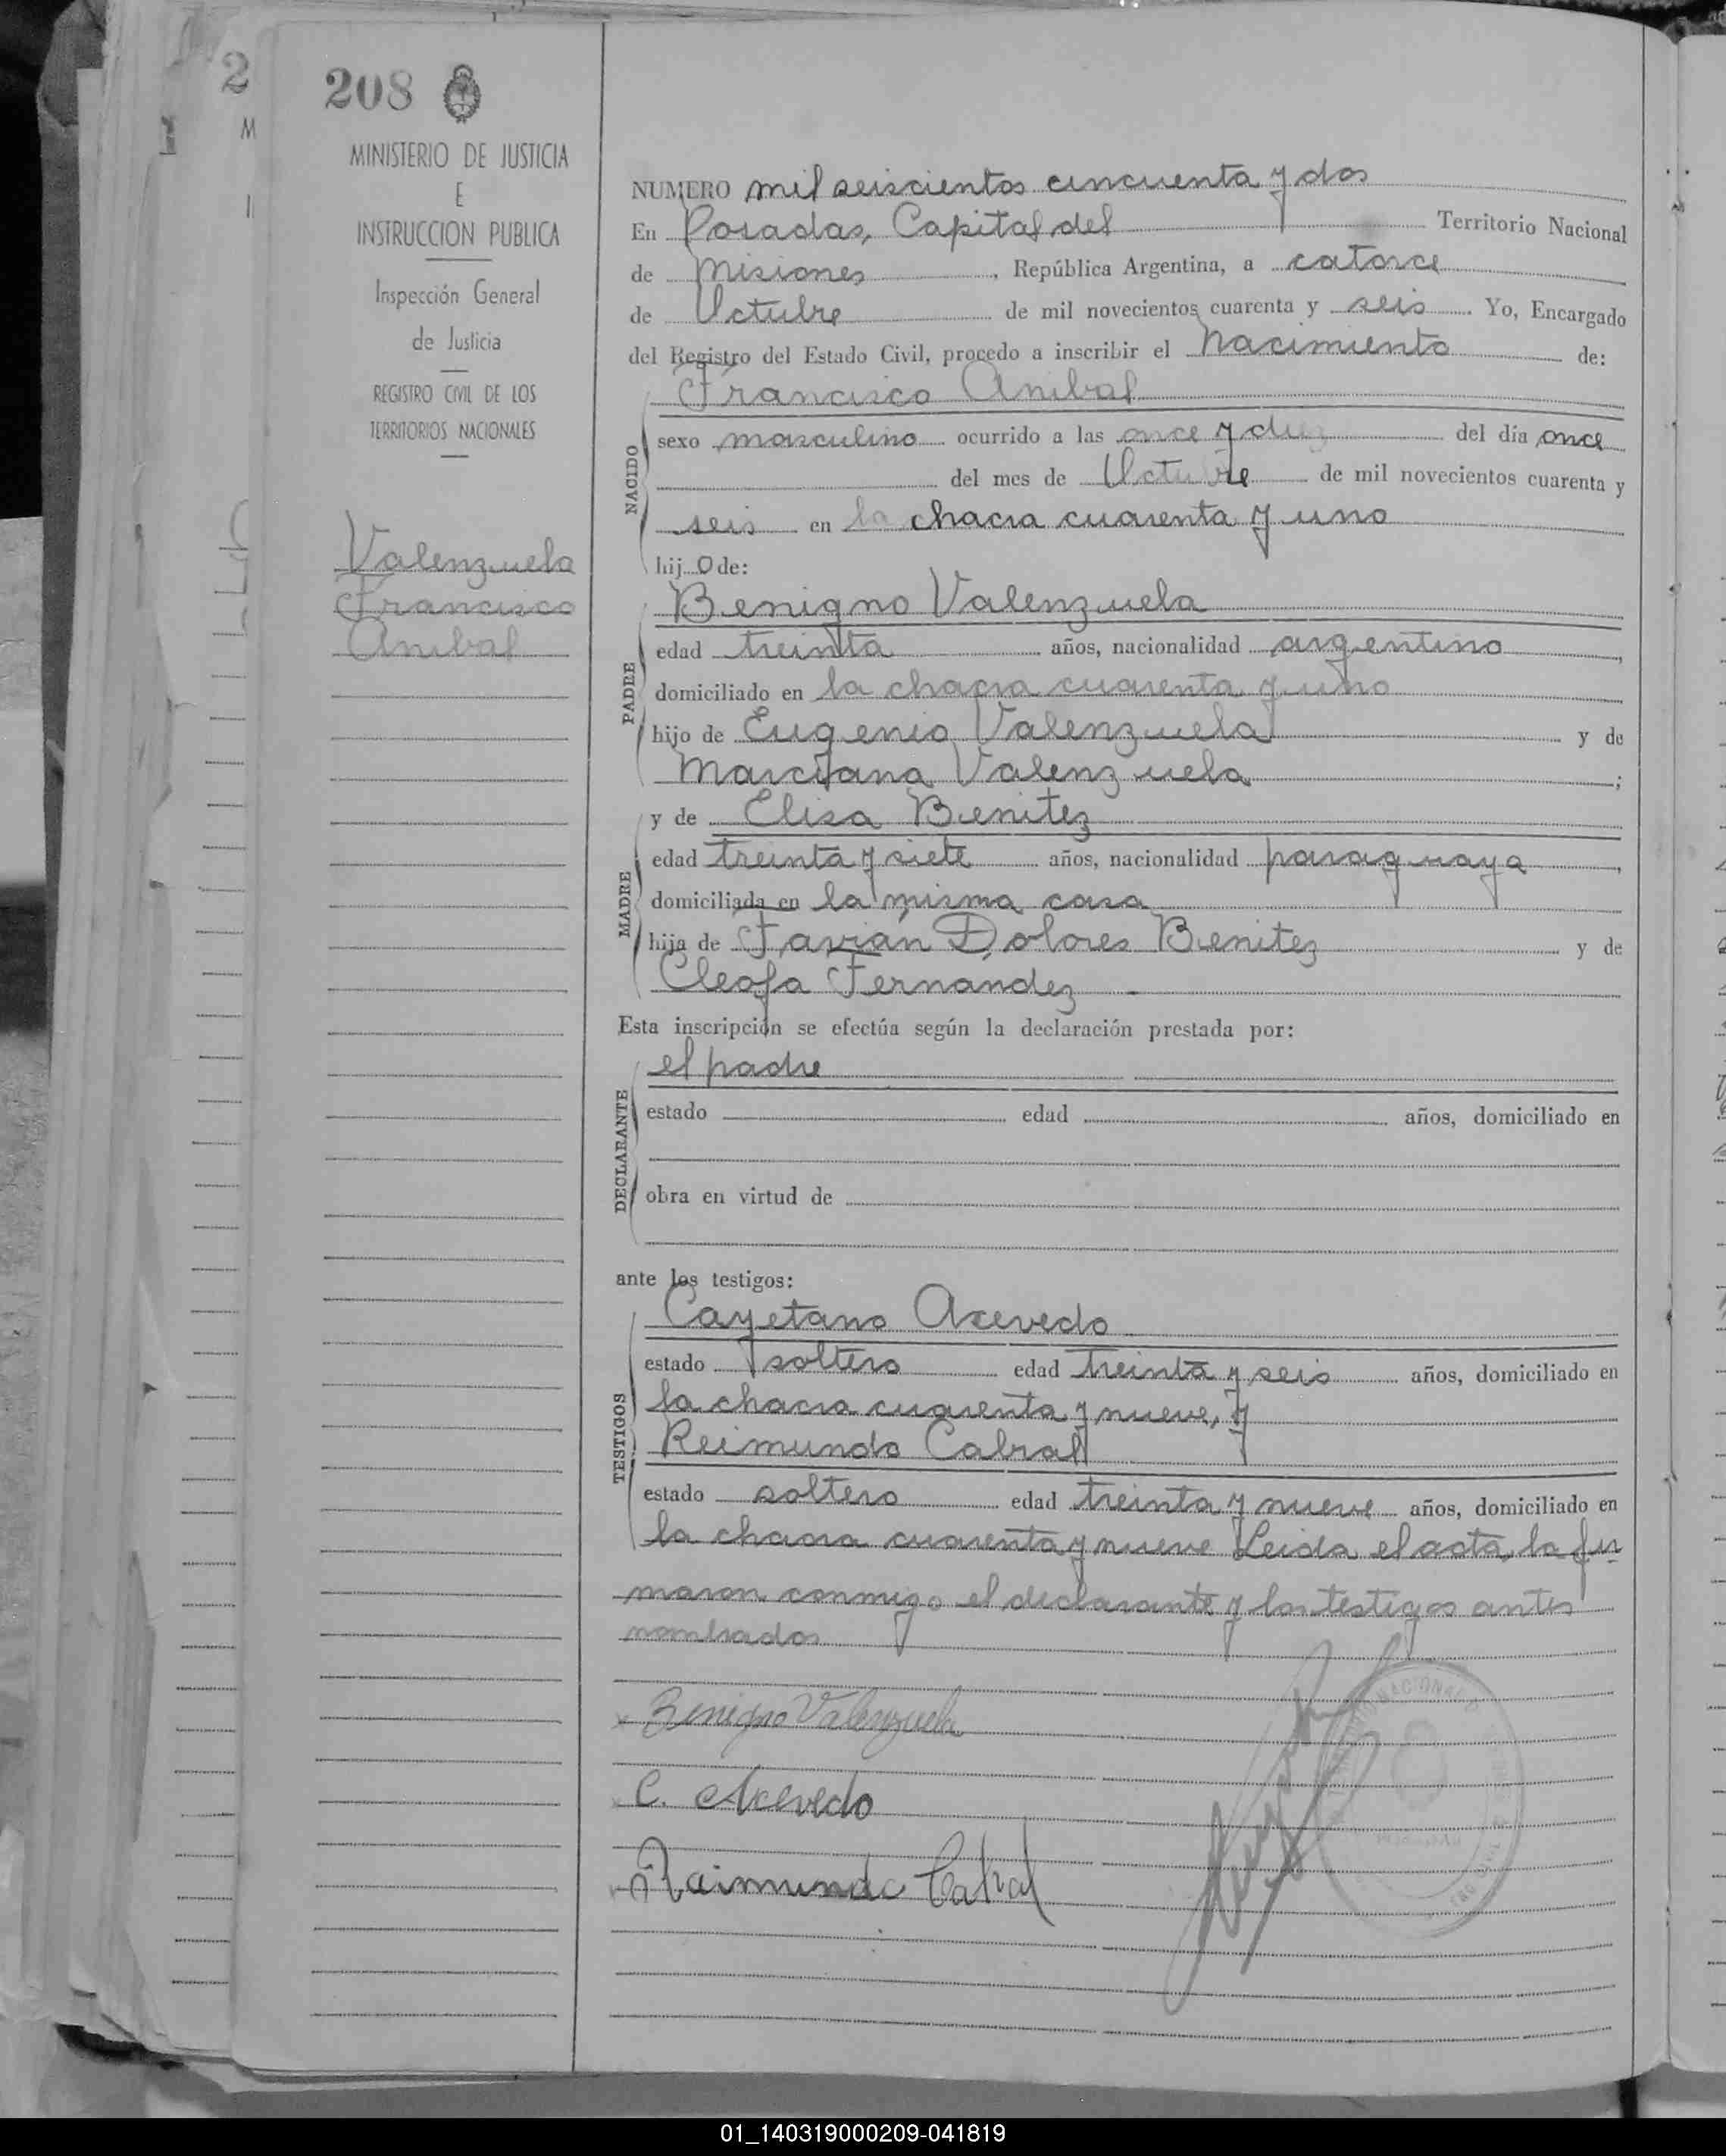 208
MINISTERIO DE JUSTICIA
E
INSTRUCCION PUBLICA
Inspección General
de Justicia
REGISTRO CIVIL DE LOS
TERRITORIOS NACIONALES
Valenzuela
Francisco
Anibal
NUMERO mil seiscientos cincuenta y dos
En Posadas, Capital del Territorio Nacional
de Misiones, República Argentina, a catorce
de Octubre de mil novecientos cuarenta y seis. Yo, Encargado
del Registro del Estado Civil, procedo a inscribir el Nacimiento de:
Francisco Anibal
NACIDO
sexo masculino ocurrido a las once y diez del día once
del mes de Octubre de mil novecientos cuarenta y
seis en la chacra cuarenta y uno
hijo de:
Benigno Valenzuela
PADRE
edad treinta años, nacionalidad argentino,
domiciliado en la chacra cuarenta y uno
hijo de Eugenio Valenzuela y de
Marciana Valenzuela;
y de Elisa Benitez
MADRE
edad treinta y siete años, nacionalidad paraguaya,
domiciliada en la misma casa
hija de Favián Dolores Benitez y de
Cleofa Fernández
Esta inscripción se efectúa según la declaración prestada por:
el padre
DECLARANTE
estado edad años, domiciliado en
obra en virtud de
ante los testigos:
Cayetano Acevedo
TESTIGOS
estado soltero edad treinta y seis años, domiciliado en
la chacra cuarenta y nueve, y
Reimundo Cabral
estado soltero edad treinta y nueve años, domiciliado en
la chacra cuarenta y nueve Leida el acta, la fir
maron conmigo el declarante y los testigos antes
nombrados
Benigno Valenzuela
C. Acevedo
Raimundo Cabral
01_140319000209-041819